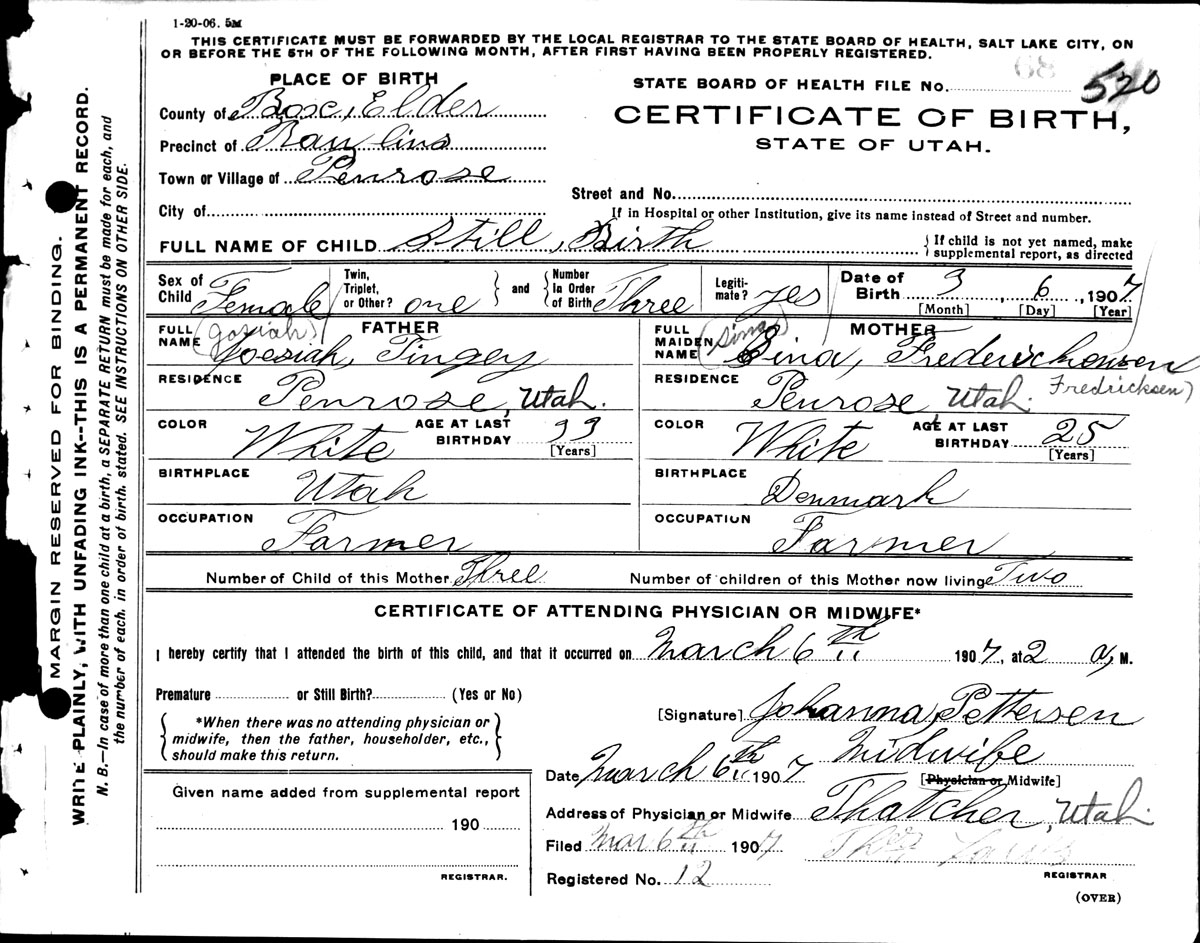 1-20-06. 5M
THIS CERTIFICATE MUST BE FORWARDED BY THE LOCAL REGISTRAR TO THE STATE BOARD OF HEALTH, SALT LAKE CITY, ON
OR BEFORE THE 5TH OF THE FOLLOWING MONTH, AFTER FIRST HAVING BEEN PROPERLY REGISTERED.
PLACE OF BIRTH
County of Box, Elder
Precinct of Rawlins
Town or Village of Penrose
City of
68
STATE BOARD OF HEALTH FILE No. 520
CERTIFICATE OF BIRTH,
STATE OF UTAH.
Street and No.
If in Hospital or other Institution, give its name instead of Street and number.
FULL NAME OF CHILD Still, Birth
If child is not yet named, make
supplemental report, as directed
Sex of Child Female
Twin, Triplet, or Other? one
and
Number In Order of Birth Three
Legiti- mate? yes
Date of Birth 3, 6, 1907
[Month] [Day] [Year]
FULL NAME
FATHER
(Josiah)
Joesiah, Tingey
RESIDENCE
Penrose, Utah.
COLOR
White
AGE AT LAST BIRTHDAY 33
[Years]
BIRTHPLACE
Utah
OCCUPATION
Farmer
FULL MAIDEN NAME
MOTHER
(Sina)
Sina, Frederichonsen
Fredricksen)
RESIDENCE
Penrose, Utah.
COLOR
White
AGE AT LAST BIRTHDAY 25
[Years]
BIRTHPLACE
Denmark
OCCUPATION
Farmer
Number of Child of this Mother Three
Number of children of this Mother now living Two
CERTIFICATE OF ATTENDING PHYSICIAN OR MIDWIFE*
I hereby certify that I attended the birth of this child, and that it occurred on March 6th 1907, at 2 a, M.
Premature or Still Birth? (Yes or No)
*When there was no attending physician or
midwife, then the father, householder, etc.,
should make this return.
[Signature] Johanna, Pettersen
Midwife
Date March 6th 1907
[Physician or Midwife]
Address of Physician or Midwife Thatcher, Utah.
Filed Mar 6th 1907
REGISTRAR
Registered No. 12
(OVER)
Given name added from supplemental report
190
REGISTRAR.
MARGIN RESERVED FOR BINDING.
WRITE PLAINLY, WITH UNFADING INK--THIS IS A PERMANENT RECORD.
N. B.—In case of more than one child at a birth, a SEPARATE RETURN must be made for each, and
the number of each, in order of birth, stated. SEE INSTRUCTIONS ON OTHER SIDE.